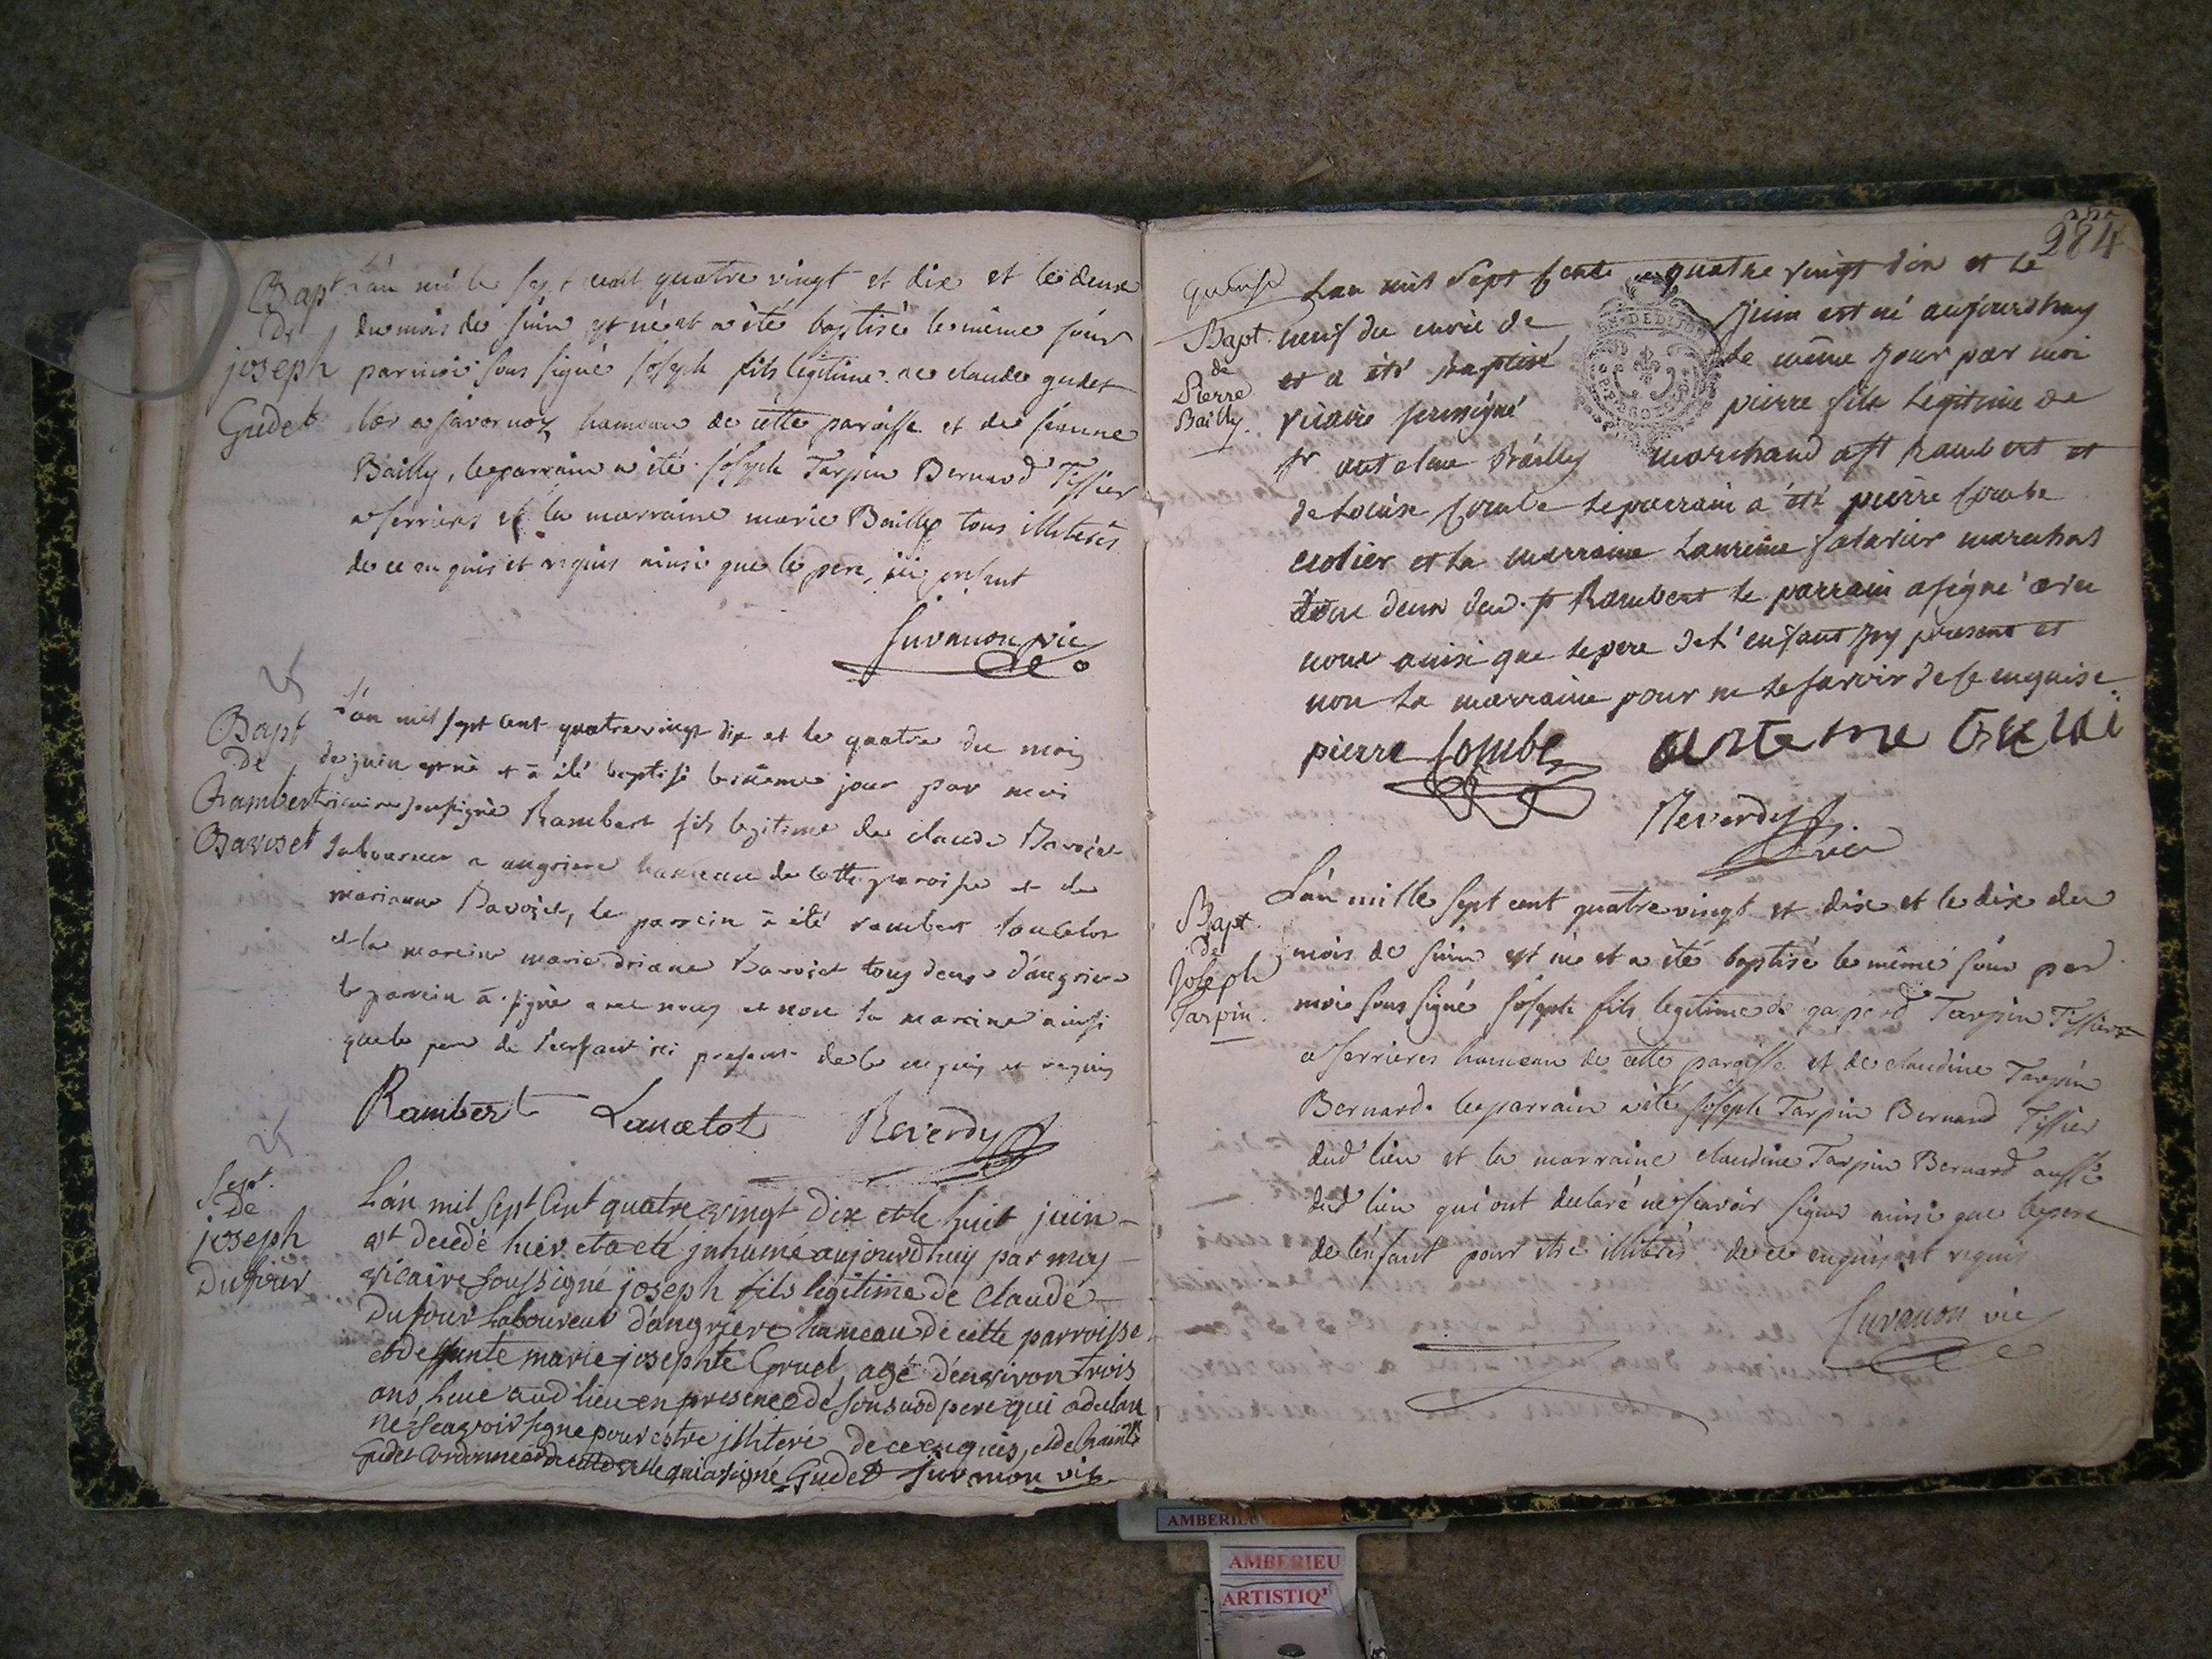 Bapt
de
joseph
Gudet
L'an mille sept cent quatre vingt et dix et le deux
du mois de juin est né et a été baptisé le même jour
par moi sous signé joseph fils légitime de claude gudet
a hameau de cette paroisse et de jeanne
Bailly, le parrain a été joseph Tarpin Bernard Tissier
a serrieres et la marraine marie Bailly tous illiterés
de ce enquis et requis ainsi que le pere, ici présent
Juvanon vic
Bapt
de
Rambert
Bavoset
L'an mil sept cent quatre vingt dix et le quatre du mois
de juin est né et a été baptisé le même jour par moi
vicaire soussigné Rambert fils legitime de claude Bavozet
laboureur a angriere hameau de cette paroisse et de
marianne Bavozet, le parrein a été rambert lancelot
et la mareine marie driane Bavozet tous deux d'angriere
le parrein a signé avec nous et non la mareine ainsi
que le pere de l'enfant ici present de ce enquis et requis
Rambert Lancelot Reverdy
Sept.
De
joseph
Dufour
L'an mil sept cent quatre vingt dix et le huit juin
est decedé hier et a eté inhumé aujourdhuy par moy
vicaire soussigné joseph fils legitime de claude
Dufour Laboureur d'angriere hameau de cette parroisse
et deffunte marie josephte Gruel, agé d'environ trois
ans, aud lieu en presence de sousd pere qui a declaré
ne scavoir signe pour estre illiteré de ce enquis, et de
Gudet Cordonnier qui a signé Gudet Juvanon vic
284
Bapt.
de
Pierre
Bailly.
Lan mil Sept Cent quatre vingt dix et le
neuf du mois de juin est né aujourdhuy
et a été baptisé le même jour par moi
vicaire soussigné pierre fils legitime de
sr antelme Bailly marchand a st Rambert et
de Louise Combe le parrain a été pierre Combe
et la marraine
tous deux de st Rambert le parrain a signé avec
nous ainsi que le pere de l'enfant icy present et
non la marraine pour ne le savoir de ce enquise.
pierre Combe
Reverdy
vic
Bapt.
de
Joseph
Tarpin.
L'an mille sept cent quatre vingt et dix et le dix du
mois de juin est né et a été baptisé le même jour par
moi sous signé joseph fils legitime de gaspard Tarpin Tissier
a serrieres hameau de cette paroisse et de claudine Tarpin
Bernard. le parrain a été joseph Tarpin Bernard Tissier
dud lieu et la marraine claudine Tarpin Bernard aussi
dud lieu qui ont declaré ne scavoir signer ainsi que le pere
de l'enfant pour etre illiterés de ce enquis et requis
Juvanon vic
AMBERIEU
AMBERIEU
ARTISTIQ'